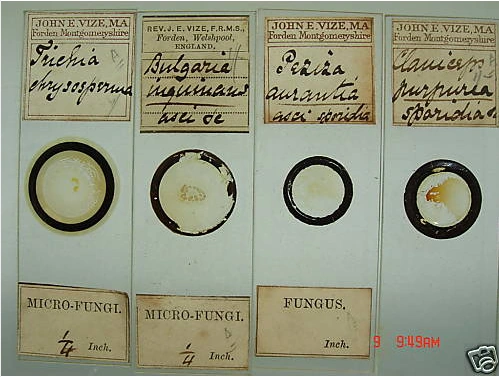 JOHN E. VIZE, MA
Forden Montgomeryshire
Trichia
chrysosperma
MICRO-FUNGI.
1/4 Inch.
REV. J. E. VIZE, F.R.M.S.,
Forden, Welshpool,
ENGLAND.
Bulgaria
inquinans
asci &c
MICRO-FUNGI.
1/4 Inch.
JOHN E. VIZE, MA
Forden Montgomeryshire
Peziza
aurantia
asci sporidia
FUNGUS.
Inch.
JOHN E. VIZE, MA
Forden Montgomeryshire
Claviceps
purpurea
sporidia
9 9:49AM